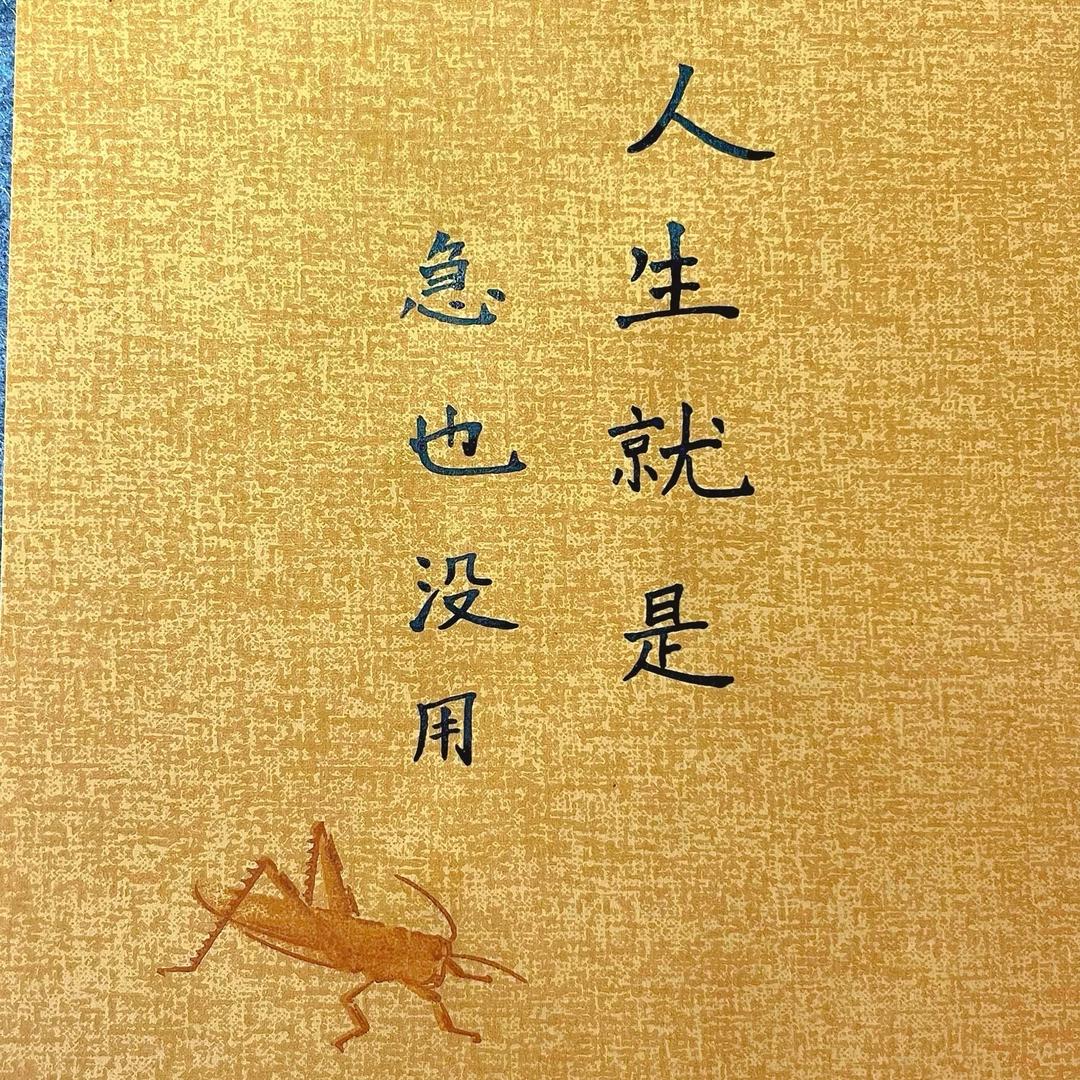 人生就是
急也没用